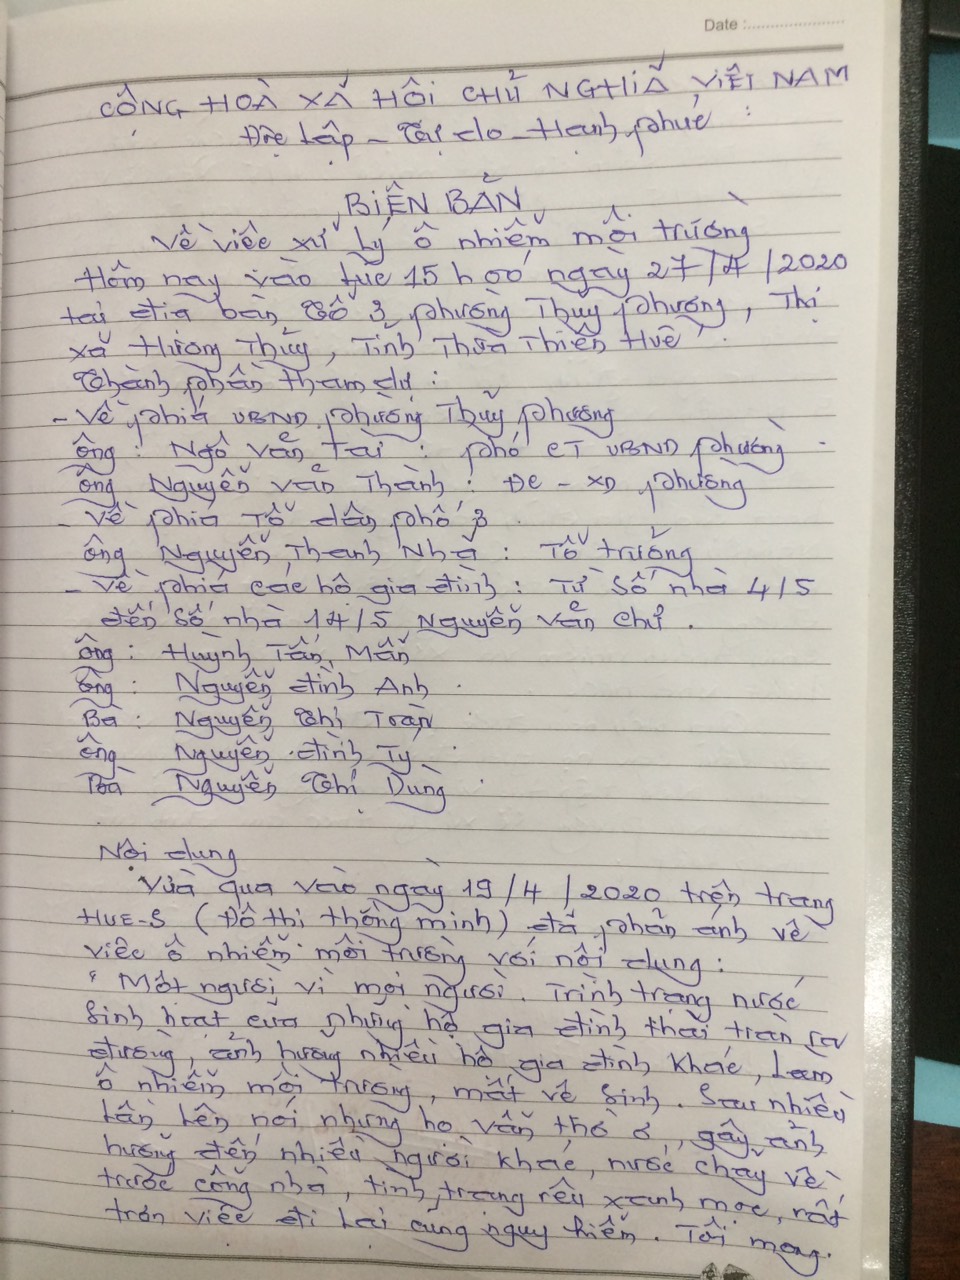 Date :
CỘNG HOÀ XÃ HỘI CHỦ NGHĨA VIỆT NAM
Độc lập - Tự do - Hạnh phúc
BIÊN BẢN
Về việc xử lý ô nhiễm môi trường
Hôm nay vào lúc 15h00' ngày 27/4/2020
tại địa bàn tổ 3 phường Thủy phương, Thị
xã Hương Thủy, Tỉnh Thừa Thiên Huế.
Thành phần tham dự :
- Về phía UBND phường Thủy phương
ông : Ngô Văn Tài : phó CT UBND phường
ông Nguyễn Văn Thành : ĐC - XD phường
- Về phía Tổ dân phố 3
ông Nguyễn Thanh Nhã : Tổ trưởng
- Về phía các hộ gia đình : Từ Số nhà 4/5
đến Số nhà 14/5 Nguyễn Văn Chư .
ông : Huỳnh Tấn Mẫn
ông : Nguyễn đình Anh
Bà : Nguyễn Thị Tràn
ông Nguyễn đình Ty
Bà Nguyễn Thị Dùng
Nội dung
Vừa qua vào ngày 19/4/2020 trên trang
HUE-S (Đô thị thông minh) đã phản ánh về
việc ô nhiễm môi trường với nội dung :
" Một người vì mọi người. Trình trạng nước
sinh hoạt của những hộ gia đình thải tràn ra
đường, ảnh hưởng nhiều hộ gia đình khác, làm
ô nhiễm môi trường, mất vệ sinh. Sau nhiều
lần lên nói nhưng họ vẫn thờ ơ, gây ảnh
hưởng đến nhiều người khác, nước chảy về
trước cổng nhà, tình trạng rêu xanh mọc, rất
trơn việc đi lại cũng nguy hiểm. Tôi mong.